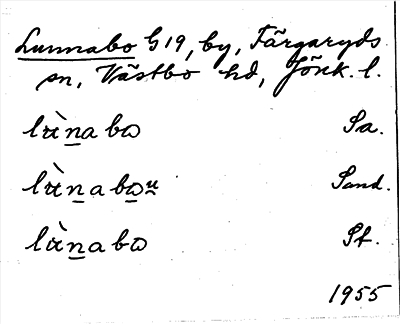 Lunnabo G19, by, Färgaryds
sn, Västbo hd, Jönk. l.
lὰn̲abɷ Sa.
lὰn̲abɷ̲ṵ Sand.
lὰn̲abɷ St.
1955